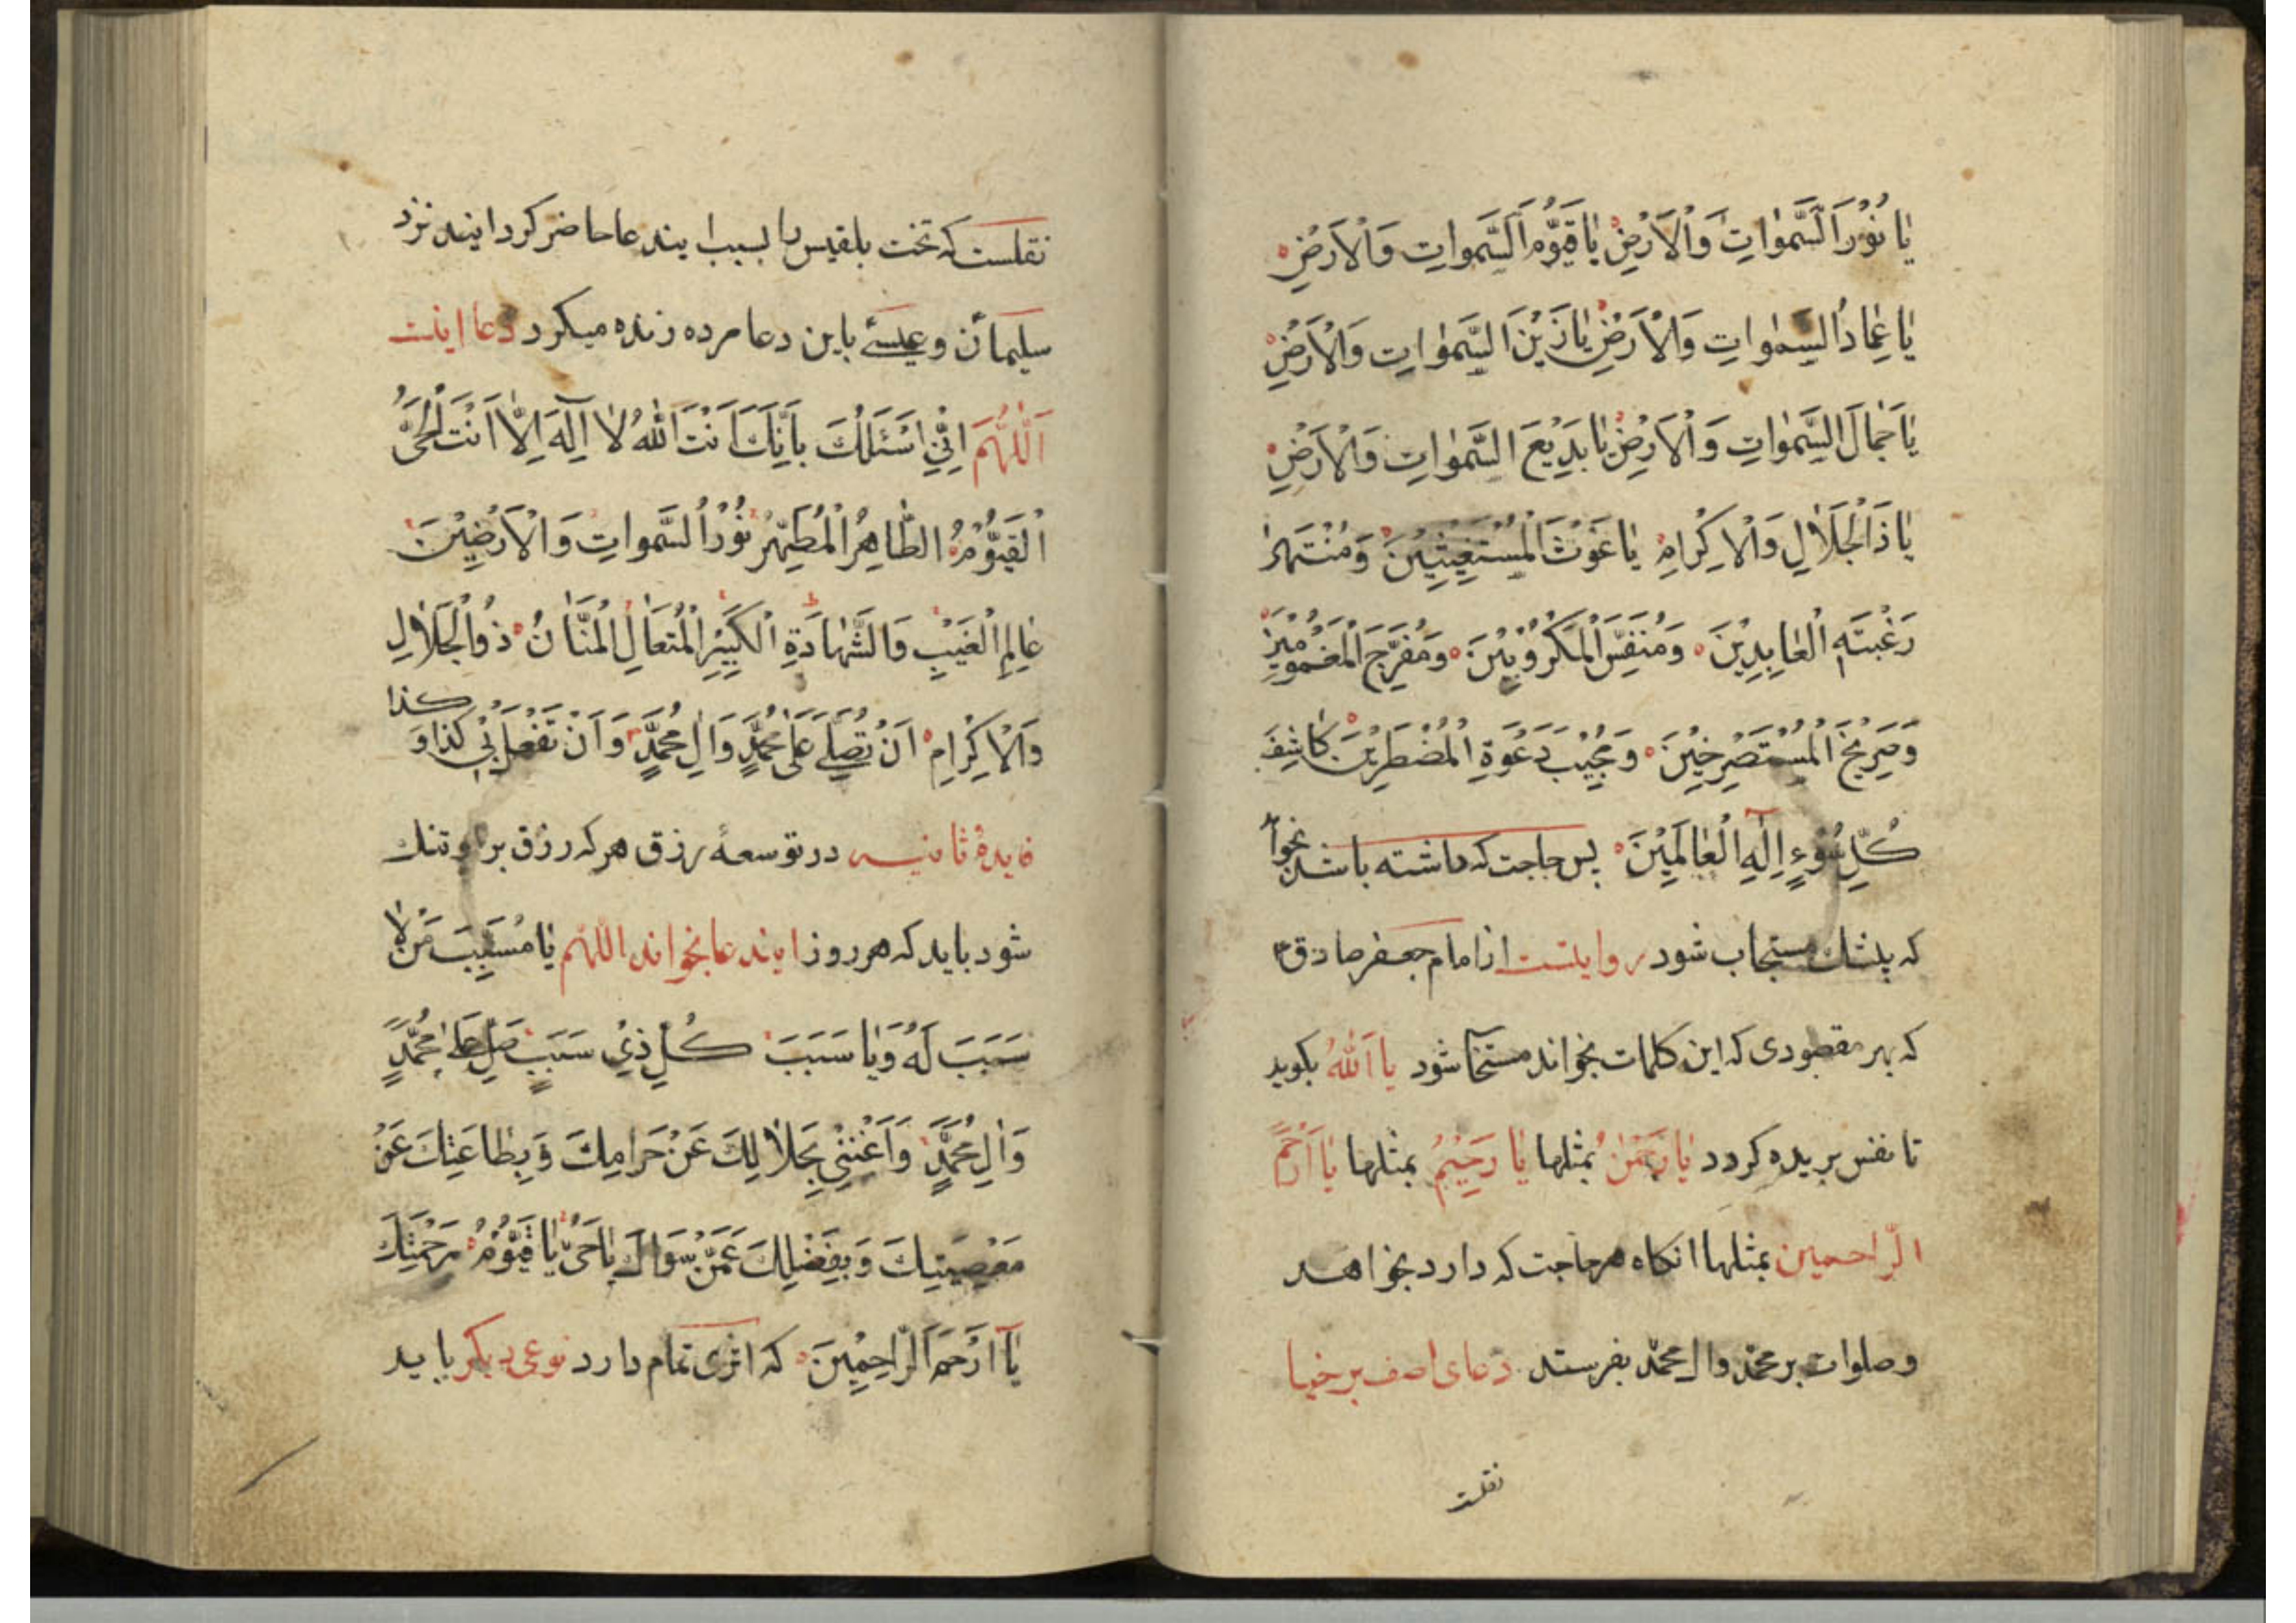 يا نُوْرَ السَّمٰواتِ وَالْاَرْضِ يا قَيُّوْمَ السَّمٰواتِ وَالْاَرْضِ
يا عِمادَ السَّمٰواتِ وَالْاَرْضِ يا زَيْنَ السَّمٰواتِ وَالْاَرْضِ
يا جَمالَ السَّمٰواتِ وَالْاَرْضِ يا بَدِيْعَ السَّمٰواتِ وَالْاَرْضِ
يا ذَا الْجَلالِ وَالْاِكْرامِ يا غَوْثَ الْمُسْتَغِيْثِيْنَ وَمُنْتَهىٰ
رَغْبَتَهِ الْعابِدِيْنَ وَمُنَفِّسَ الْمَكْرُوْبِيْنَ وَمُفَرِّجَ الْمَغْمُوْمِيْنَ
وَصَرِيْخَ الْمُسْتَصْرِخِيْنَ وَمُجِيْبَ دَعْوَةِ الْمُضْطَرِيْنَ كاشِفَ
كُلِّ سُوْءٍ اِلٰهَ الْعالَمِيْنَ پس حاجت كه داشته باشد بخوا
كه بيشك مستجاب شود روايتست از امام جعفر صادق ع
كه بهر مقصودى كه اين كلمات بخواند مستجا شود يا اَللّٰهُ بكويد
تا نفس بريده كردد يا رَحْمٰنُ بمثلها يا رَحِيْمُ بمثلها يا اَرْحَمَ
الرّاحمين بمثلها انكاه هر حاجت كه دارد بخواهد
و صلوات بر محمّد وال محمّد بفرستد دعاى اصف برخيا
نقلست
نقلست كه تخت بلقيس را بسبب ايندعا حاضر كردانيند نزد
سليمان و عيسى باين دعا مرده زنده ميكرد دعا اينست
اَللّٰهُمَّ اِنِّيْ اَسْئَلُكَ بِاَنَّكَ اَنْتَ اللّٰهُ لا اِلٰهَ اِلّا اَنْتَ الْحَيُّ
الْقَيُّوْمُ الطّاهِرُ الْمُطَهِّرُ نُوْرُ السَّمواتِ وَالْاَرَضِيْنَ
عالِمِ الْغَيْبِ وَالشَّهادَةِ الْكَبِيْرِ الْمُتَعالِ الْمَنّانُ ذُو الْجَلالِ
وَالْاِكْرامِ اَنْ تُصَلِّيَ عَلىٰ مُحَمَّدٍ وَالِ مُحَمَّدٍ وَاَنْ تَفْعَلَ بِيْ كَذا وَ كذا
فايدهٔ ثانيه در توسعهٔ رزق هر كه رزق بر او تنك
شود بايد كه هر روز ايندعا بخواند اللّهم يا مُسَبِّبَ مَنْ لا
سَبَبَ لَهُ وَيا سَبَبَ كُلِّ ذِيْ سَبَبٍ صَلِّ عَلىٰ مُحَمَّدٍ
وَالِ مُحَمَّدٍ وَاَغْنِنِيْ بِحَلالِكَ عَنْ حَرامِكَ وَبِطاعَتِكَ عَنْ
مَعْصِيَتِكَ وَبِفَضْلِكَ عَمَّنْ سِوَاكَ يا حَيُّ يا قَيُّوْمُ بِرَحْمَتِكَ
يا اَرْحَمَ الرّاحِمِيْنَ كه اثرى تمام دارد نوعى ديكر بايد